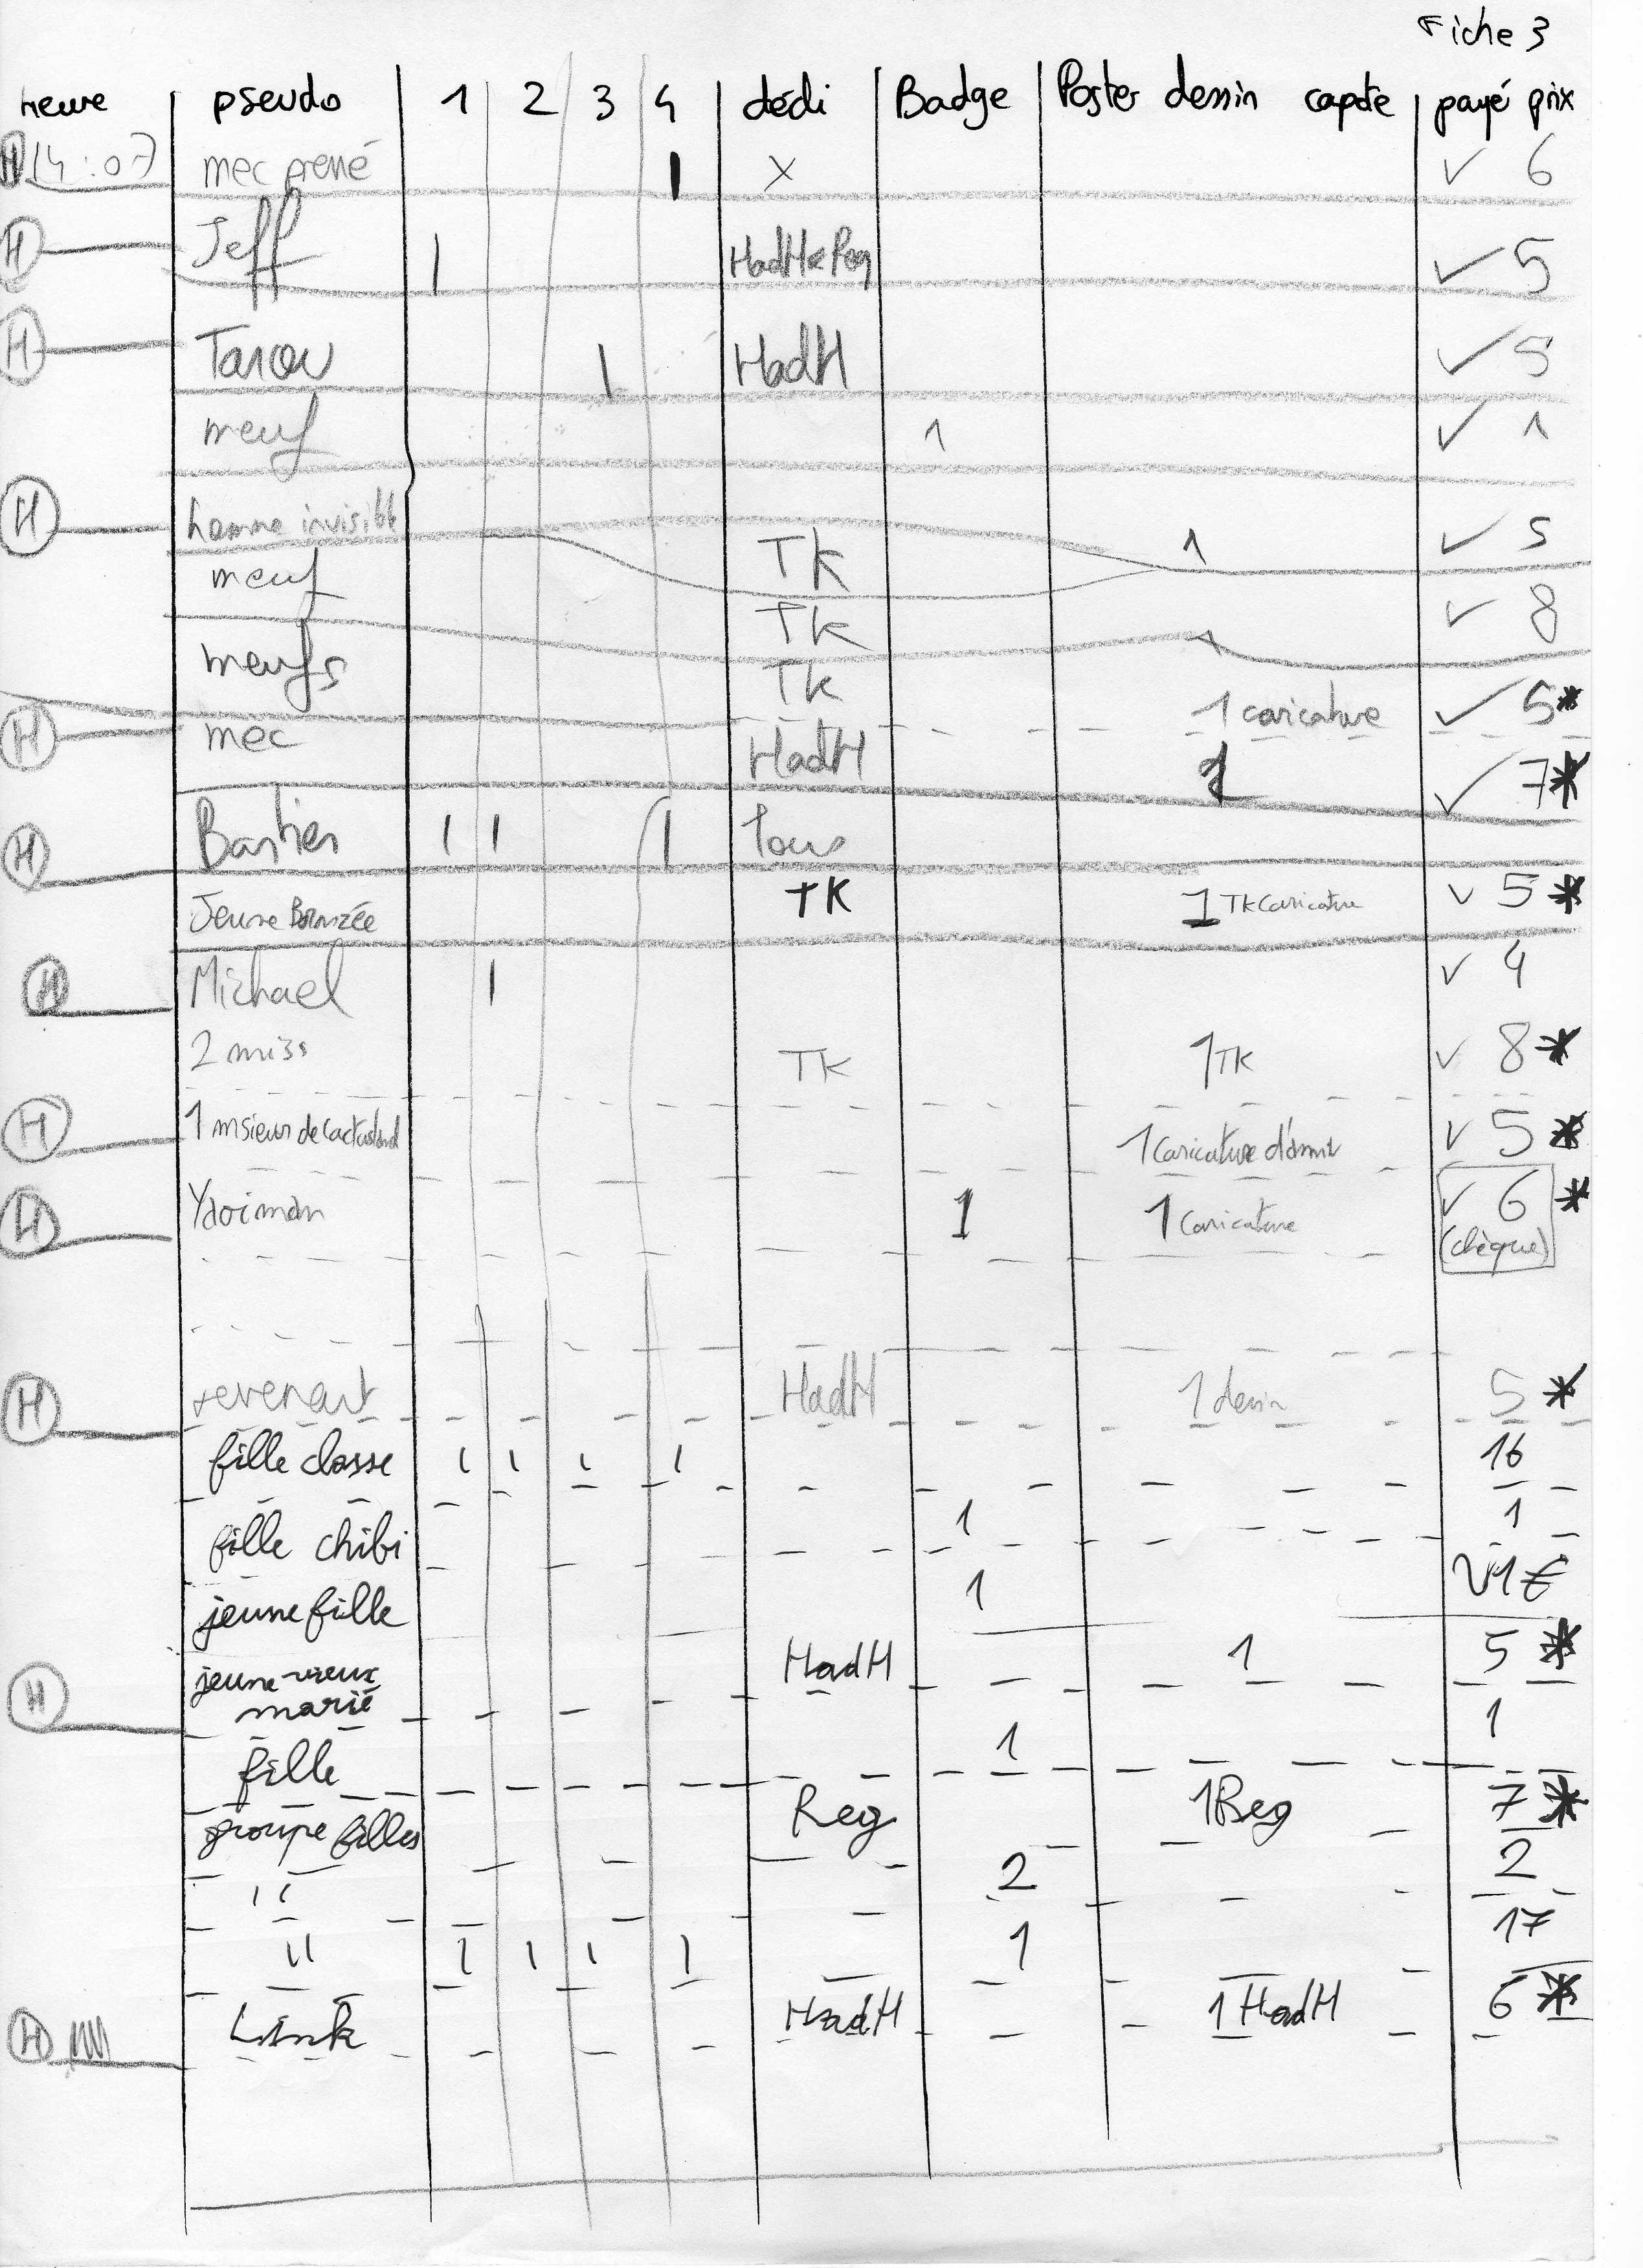 Fiche 3
heure pseudo 1 2 3 4 dédi Badge Poster dessin capte payé prix
H 14:07 mec prené 1 x ✓ 6
H Jeff 1 HadH & Reg ✓ 5
H Tarou 1 HadH ✓ 5
meuf 1 ✓ 1
H homme invisible TK 1 ✓ 5
meuf TK 1 ✓ 8
meufs TK 1 caricature ✓ 5*
H mec HadH 1 ✓ 7*
H Bastien 1 1 1 Tous
Jeune Bronzée TK 1 TK Caricature ✓ 5*
H Michael 1 ✓ 4
2 miss TK 1 TK ✓ 8*
H 1 msieur de Cactusland 1 Caricature d'ami ✓ 5*
H Yaoiman 1 1 Caricature ✓ 6 *
(chèque)
H revenant HadH 1 dessin 5 *
fille classe 1 1 1 1 16
fille chibi 1 1
jeune fille 1 ✓ 1 €
H jeune-vieux HadH 1 5 *
marié
fille 1 1
groupe filles Reg 1 Reg 7 *
" 2 2
" 1 1 1 1 1 17
H Link HadH 1 HadH 6 *